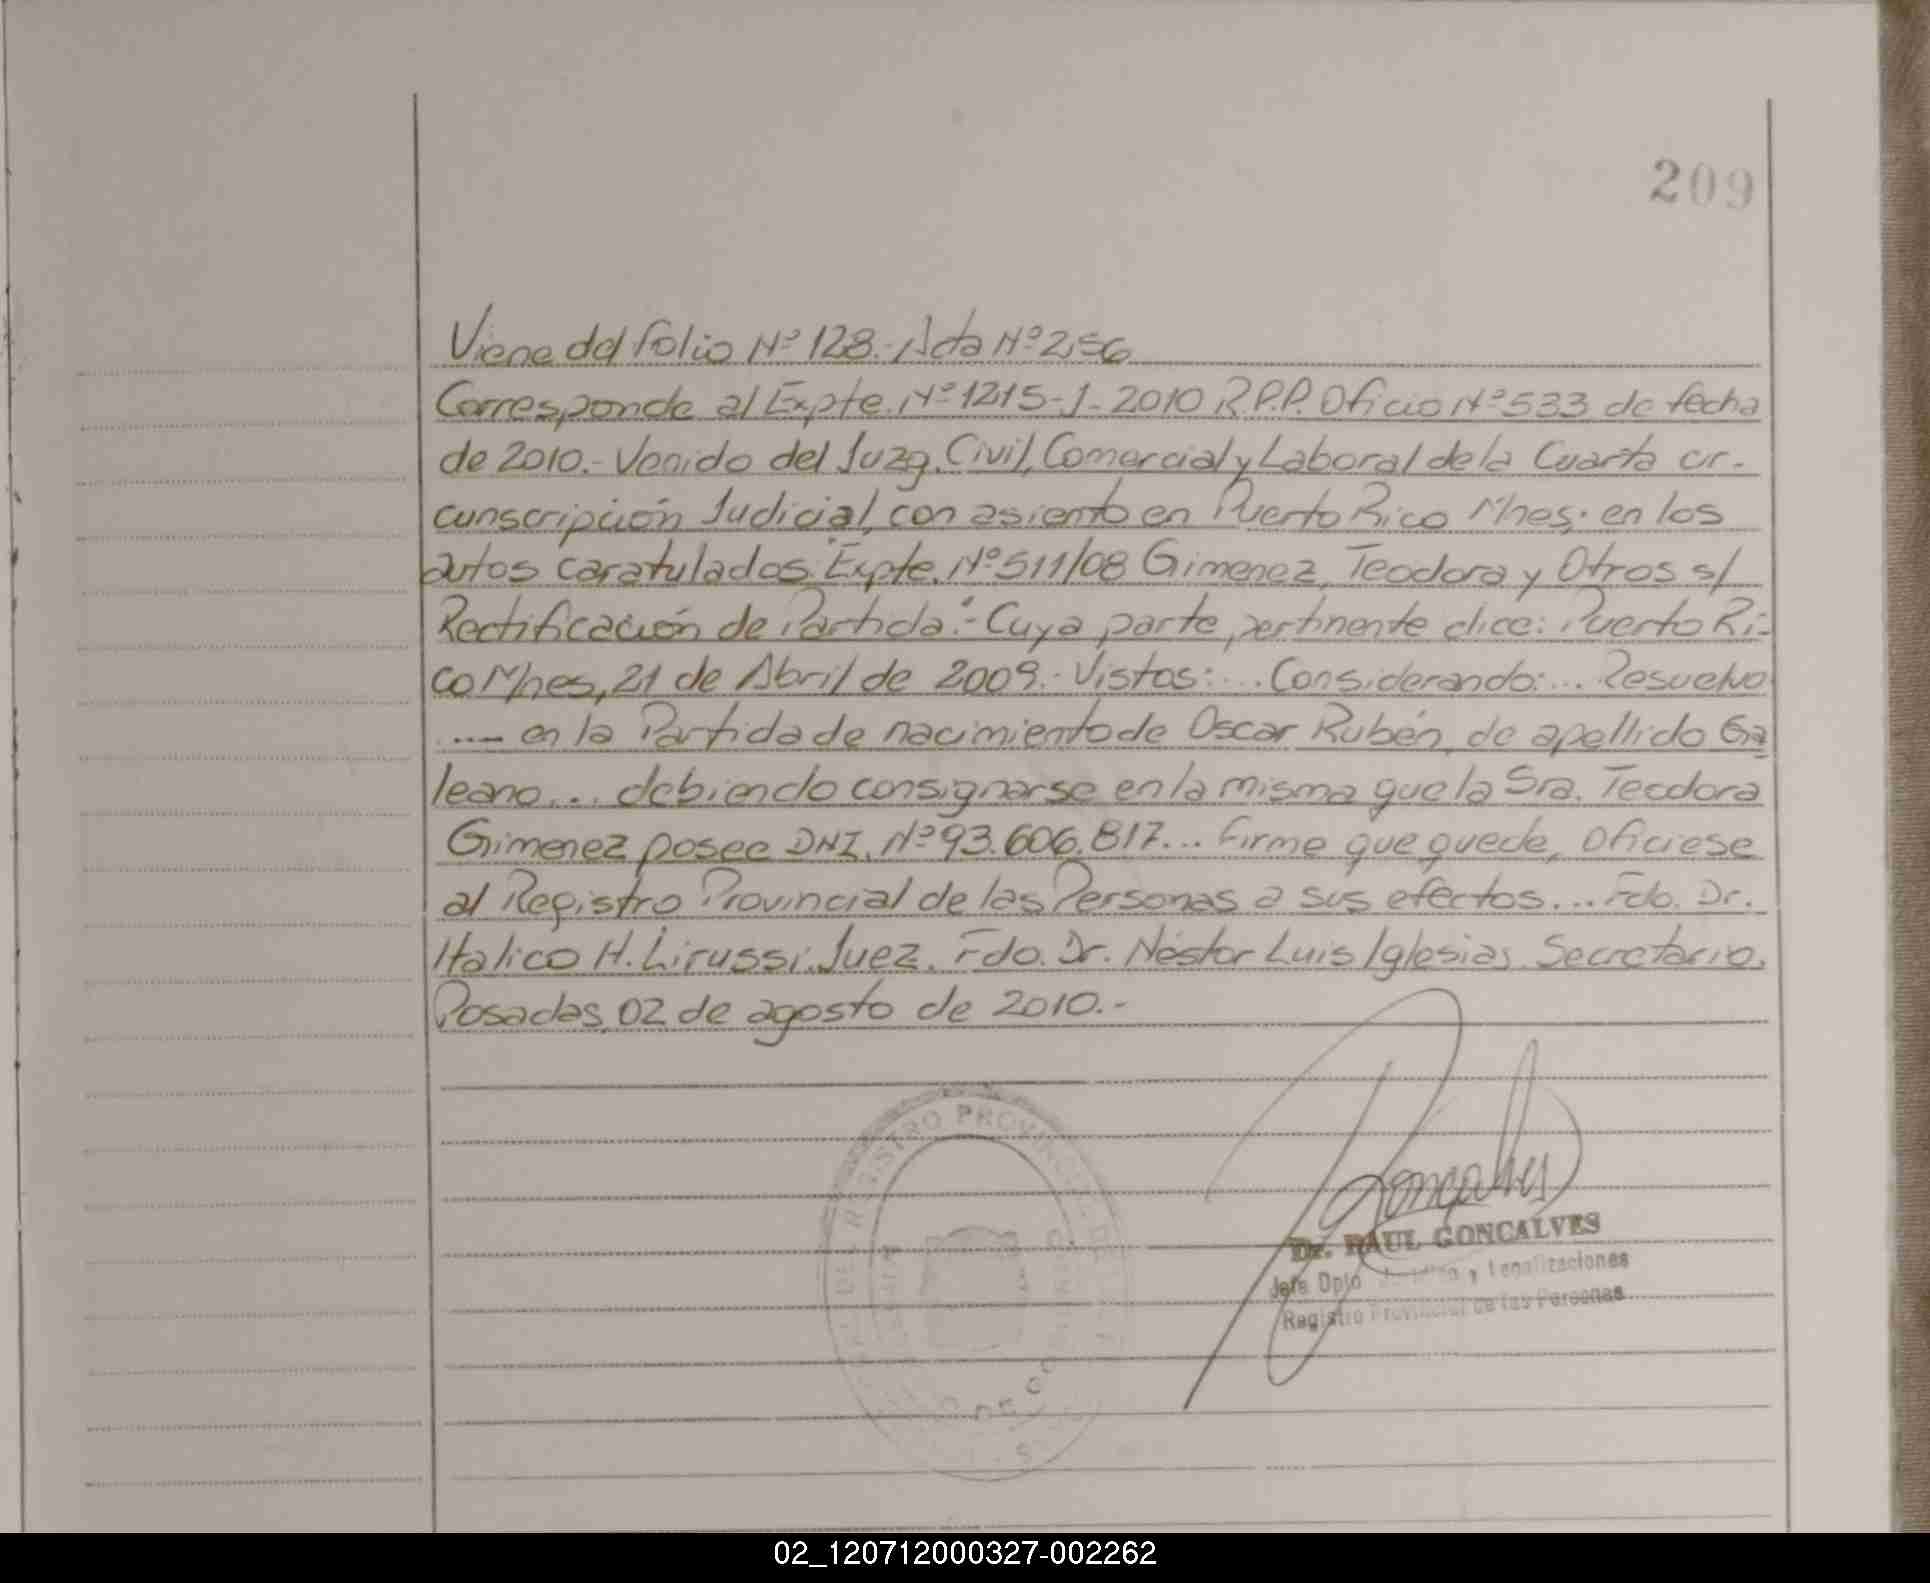 209
Viene del folio Nº 128.- Acta Nº 256
Corresponde al Expte. Nº 1215-J-2010 R.P.P. Oficio Nº 533 de fecha
de 2010.- Venido del Juzg. Civil, Comercial y Laboral de la Cuarta cir-
cunscripción Judicial, con asiento en Puerto Rico Mnes. en los
autos caratulados "Expte. Nº 511/08 Gimenez, Teodora y Otros s/
Rectificación de Partida".- Cuya parte pertinente dice: Puerto Ri-
co Mnes, 21 de Abril de 2009.- Vistos:... Considerando:... Resuelvo
.... en la Partida de nacimiento de Oscar Rubén, de apellido Ga
leano... debiendo consignarse en la misma que la Sra. Teodora
Gimenez posee DNI. Nº 93.606.817... Firme que quede, Oficiese
al Registro Provincial de las Personas a sus efectos... Fdo. Dr.
Italico H. Lirussi. Juez. Fdo. Dr. Néstor Luis Iglesias. Secretario.
Posadas, 02 de agosto de 2010.-
REGISTRO PROVINCIAL DE
Goncalves
Dr. RAUL GONCALVES
Jefe Dpto. Jurídico y Legalizaciones
Registro Provincial de las Personas
02_120712000327-002262